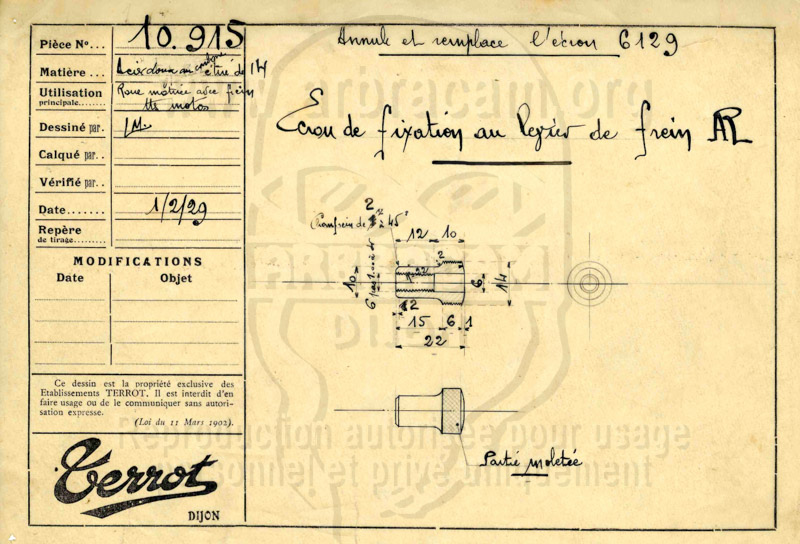 Pièce Nº... 10.915
Matière ... Acier doux au carbone étiré de 14
Utilisation principale.... Roue motrice avec frein
ttes motos
Dessiné par. J.M.
Calqué par...
Vérifié par..
Date....... 1/2/29
Repère
de tirage.........
MODIFICATIONS
Date Objet
Ce dessin est la propriété exclusive des
Etablissements TERROT. Il est interdit d'en
faire usage ou de le communiquer sans autori-
sation expresse.
(Loi du 11 Mars 1902).
Terrot
DIJON
Annule et remplace l'écrou 6129
Ecrou de fixation au levier de frein AR
2
Chanfrein de 2 à 45°
12 10
2
22
10
6 pas
6
14
2
15 6 1
22
Partie moletée
arbracam.org
ARBRACAM
DIJON
Reproduction autorisée pour usage
personnel et privé uniquement